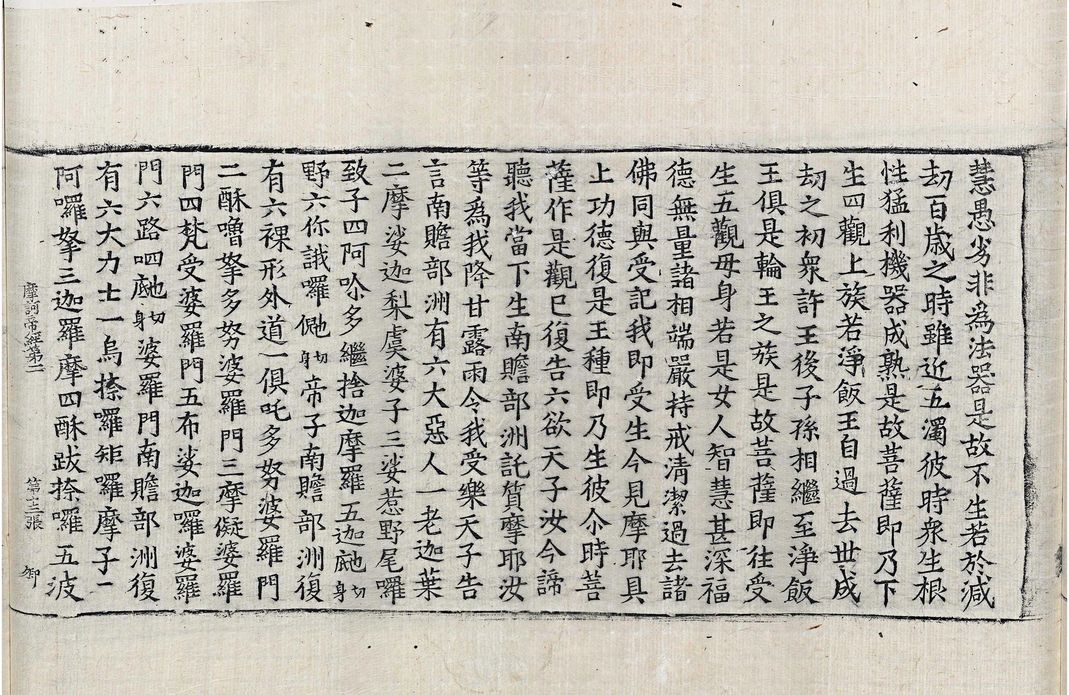 慧愚劣非為法器是故不生若於減
刧百歲之時雖近五濁彼時衆生根
性猛利機器成熟是故菩薩即乃下
生四觀上族若淨飯王自過去世成
刧之初衆許王後子孫相繼至淨飯
王俱是輪王之族是故菩薩即往受
生五觀毋身若是女人智慧甚深福
德無量諸相端嚴持戒清潔過去諸
佛同與受記我即受生今見摩耶具
上功德復是王種即乃生彼尒時菩
薩作是觀巳復告六欲天子汝今諦
聽我當下生南贍部洲託質摩耶汝
等爲我降甘露雨令我受樂天子告
言南贍部洲有六大惡人一老迦葉
二摩娑迦梨虞婆子三娑惹野尾囉
致子四阿唅多繼捨迦摩羅五迦 切身
野六你誐囉 切身帝子南贍部洲復
有六裸形外道一俱吒多努婆羅門
二酥嚕拏多努婆羅門三摩儗婆羅
門四梵受婆羅門五布娑迦囉婆羅
門六路呬 切身婆羅門南贍部洲復
有六大力士一烏捺囉矩囉摩子一
阿囉拏三迦羅摩四酥跋捺囉五波
摩訶帝經第二 第十三張 御